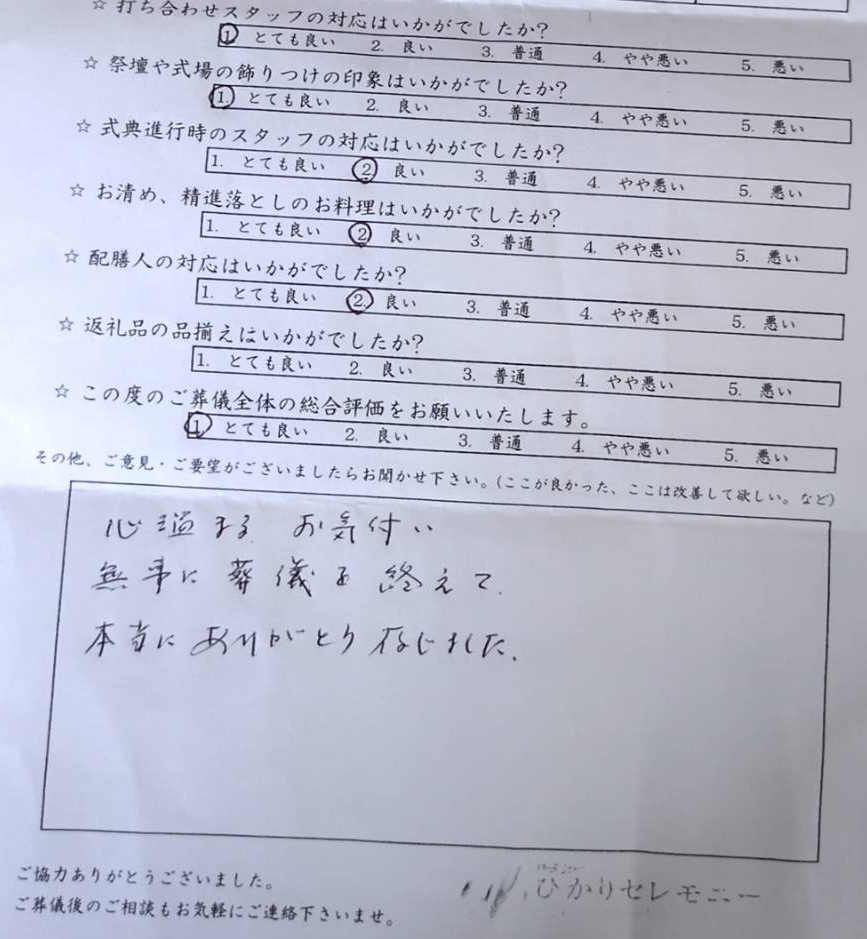 ☆ 打ち合わせスタッフの対応はいかがでしたか?
1. とても良い 2. 良い 3. 普通 4. やや悪い 5. 悪い
☆ 祭壇や式場の飾りつけの印象はいかがでしたか?
1. とても良い 2. 良い 3. 普通 4. やや悪い 5. 悪い
☆ 式典進行時のスタッフの対応はいかがでしたか?
1. とても良い 2. 良い 3. 普通 4. やや悪い 5. 悪い
☆ お清め、精進落としのお料理はいかがでしたか?
1. とても良い 2. 良い 3. 普通 4. やや悪い 5. 悪い
☆ 配膳人の対応はいかがでしたか?
1. とても良い 2. 良い 3. 普通 4. やや悪い 5. 悪い
☆ 返礼品の品揃えはいかがでしたか?
1. とても良い 2. 良い 3. 普通 4. やや悪い 5. 悪い
☆ この度のご葬儀全体の総合評価をお願いいたします。
1. とても良い 2. 良い 3. 普通 4. やや悪い 5. 悪い
その他、ご意見・ご要望がございましたらお聞かせ下さい。(ここが良かった、ここは改善して欲しい。など)
心温まる お気付い
無事に葬儀を終えて
本当にありがとう存じました.
ご協力ありがとうございました。
ご葬儀後のご相談もお気軽にご連絡下さいませ。
ひかりセレモニー